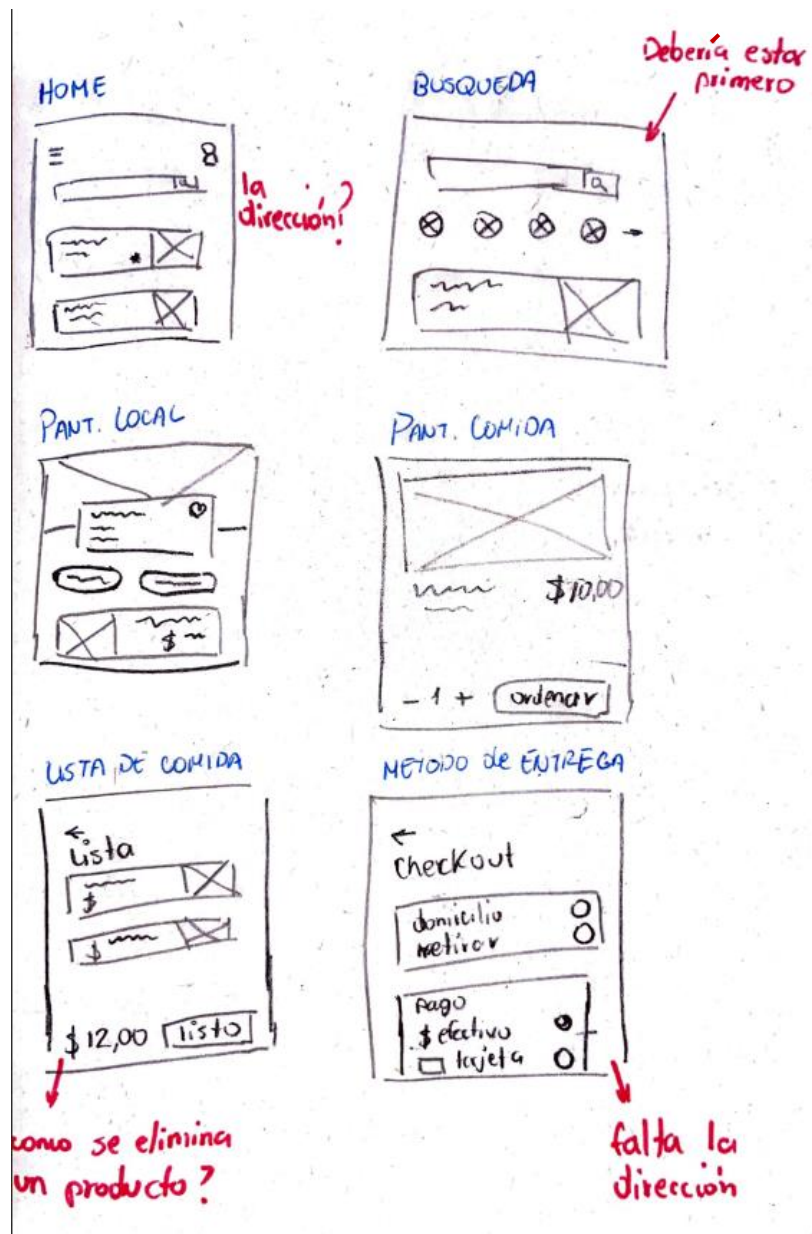 HOME
la
dirección?
BUSQUEDA
Debería estar
primero
PANT. LOCAL
$
PANT. COMIDA
$10,00
- 1 + ordenar
LISTA DE COMIDA
←
Lista
$
$
$12,00 listo
como se elimina
un producto?
METODO de ENTREGA
←
checkout
domicilio
retirar
pago
$ efectivo
tarjeta
falta la
dirección